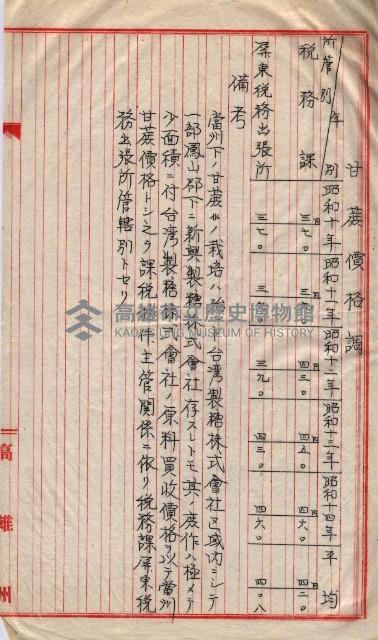 甘蔗價格調
所管別 年別 昭和十年 昭和十一年 昭和十二年 昭和十三年 昭和十四年 平均
稅務課 三七〇 四三〇 四五〇 四六〇 四二〇
屏東稅務出張所 三七〇 三九〇 四三〇 四六〇 四〇八
備考
當州下ノ甘蔗ノ栽培ハ台湾製糖株式會社区域内ニシテ
一部鳳山郡下ニ新興製糖株式會社存スレトモ其ノ蔗作ハ極メテ
少面積ニ付台湾製糖株式會社ノ原料買收價格ヲ以テ當州
甘蔗價格トシ之ヲ課稅作主管関係ニ依リ稅務課屏東稅
務出張所管轄別トセリ
高雄州
高雄市立歷史博物館
KAOHSIUNG MUSEUM OF HISTORY